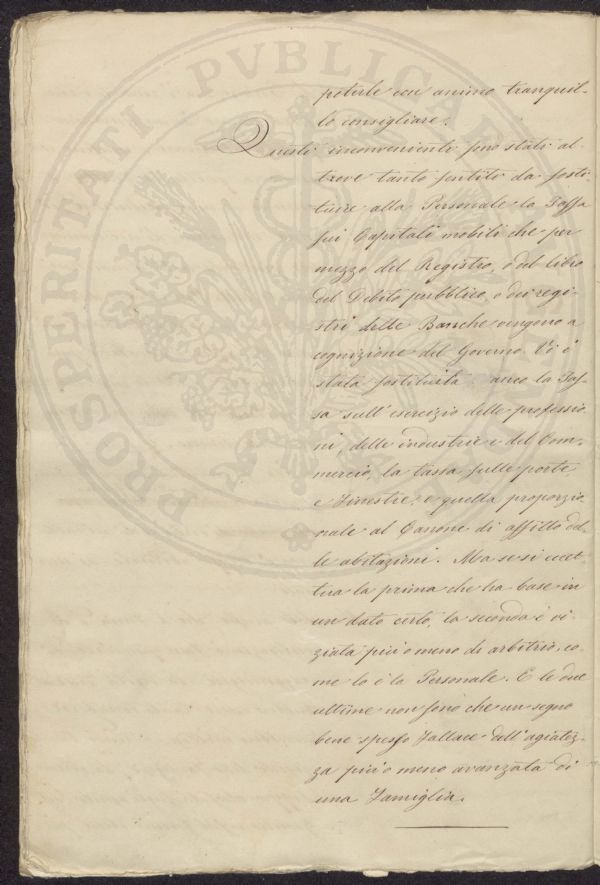 PROSPERITATI PVBLICAE
poterle con animo tranquil-
lo consigliare.
Questi inconvenienti sono stati al-
trove tanto sentiti da sosti-
tuire alla Personale la Tassa
sui Capitali mobili che per
mezzo del Registro, o del libro
del Debito pubblico, o dei regi-
stri delle Banche vengono a
cognizione del Governo. Vi è
stata sostituita anco la Tas-
sa sull'esercizio delle professio
ni, delle industrie e del Com-
mercio, la tassa sulle porte,
e Finestre, e quella proporzio
nale al Canone di affitto del-
le abitazioni. Ma se si eccet-
tua la prima che ha base in
un dato certo, la seconda è vi-
ziata più o meno di arbitrio, co-
me lo è la Personale. E le due
ultime non sono che un segno
bene spesso fallace dell'agiatez-
za più o meno avanzata di
una Famiglia.